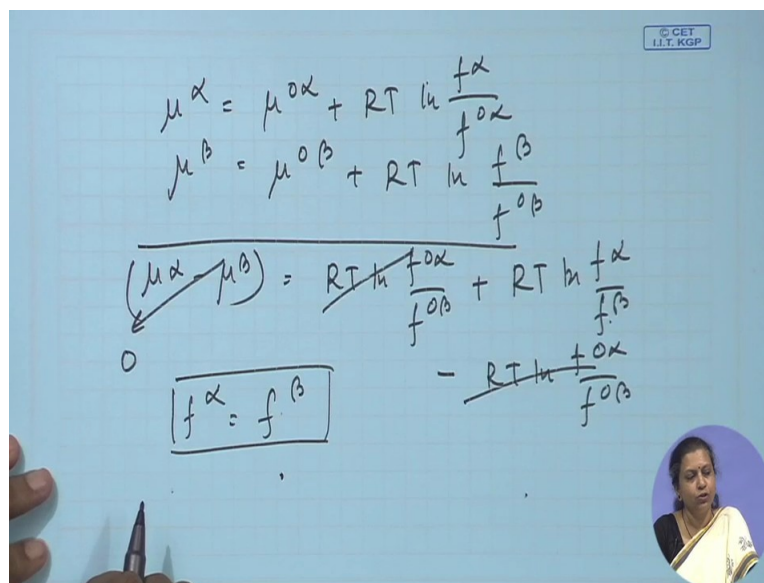 © CET
I.I.T. KGP
μ^α = μ^0α + RT ln f^α / f^0α
μ^β = μ^0β + RT ln f^β / f^0β
(μ^α - μ^β) = RT ln f^0α / f^0β + RT ln f^α / f^β
0
- RT ln f^0α / f^0β
f^α = f^β